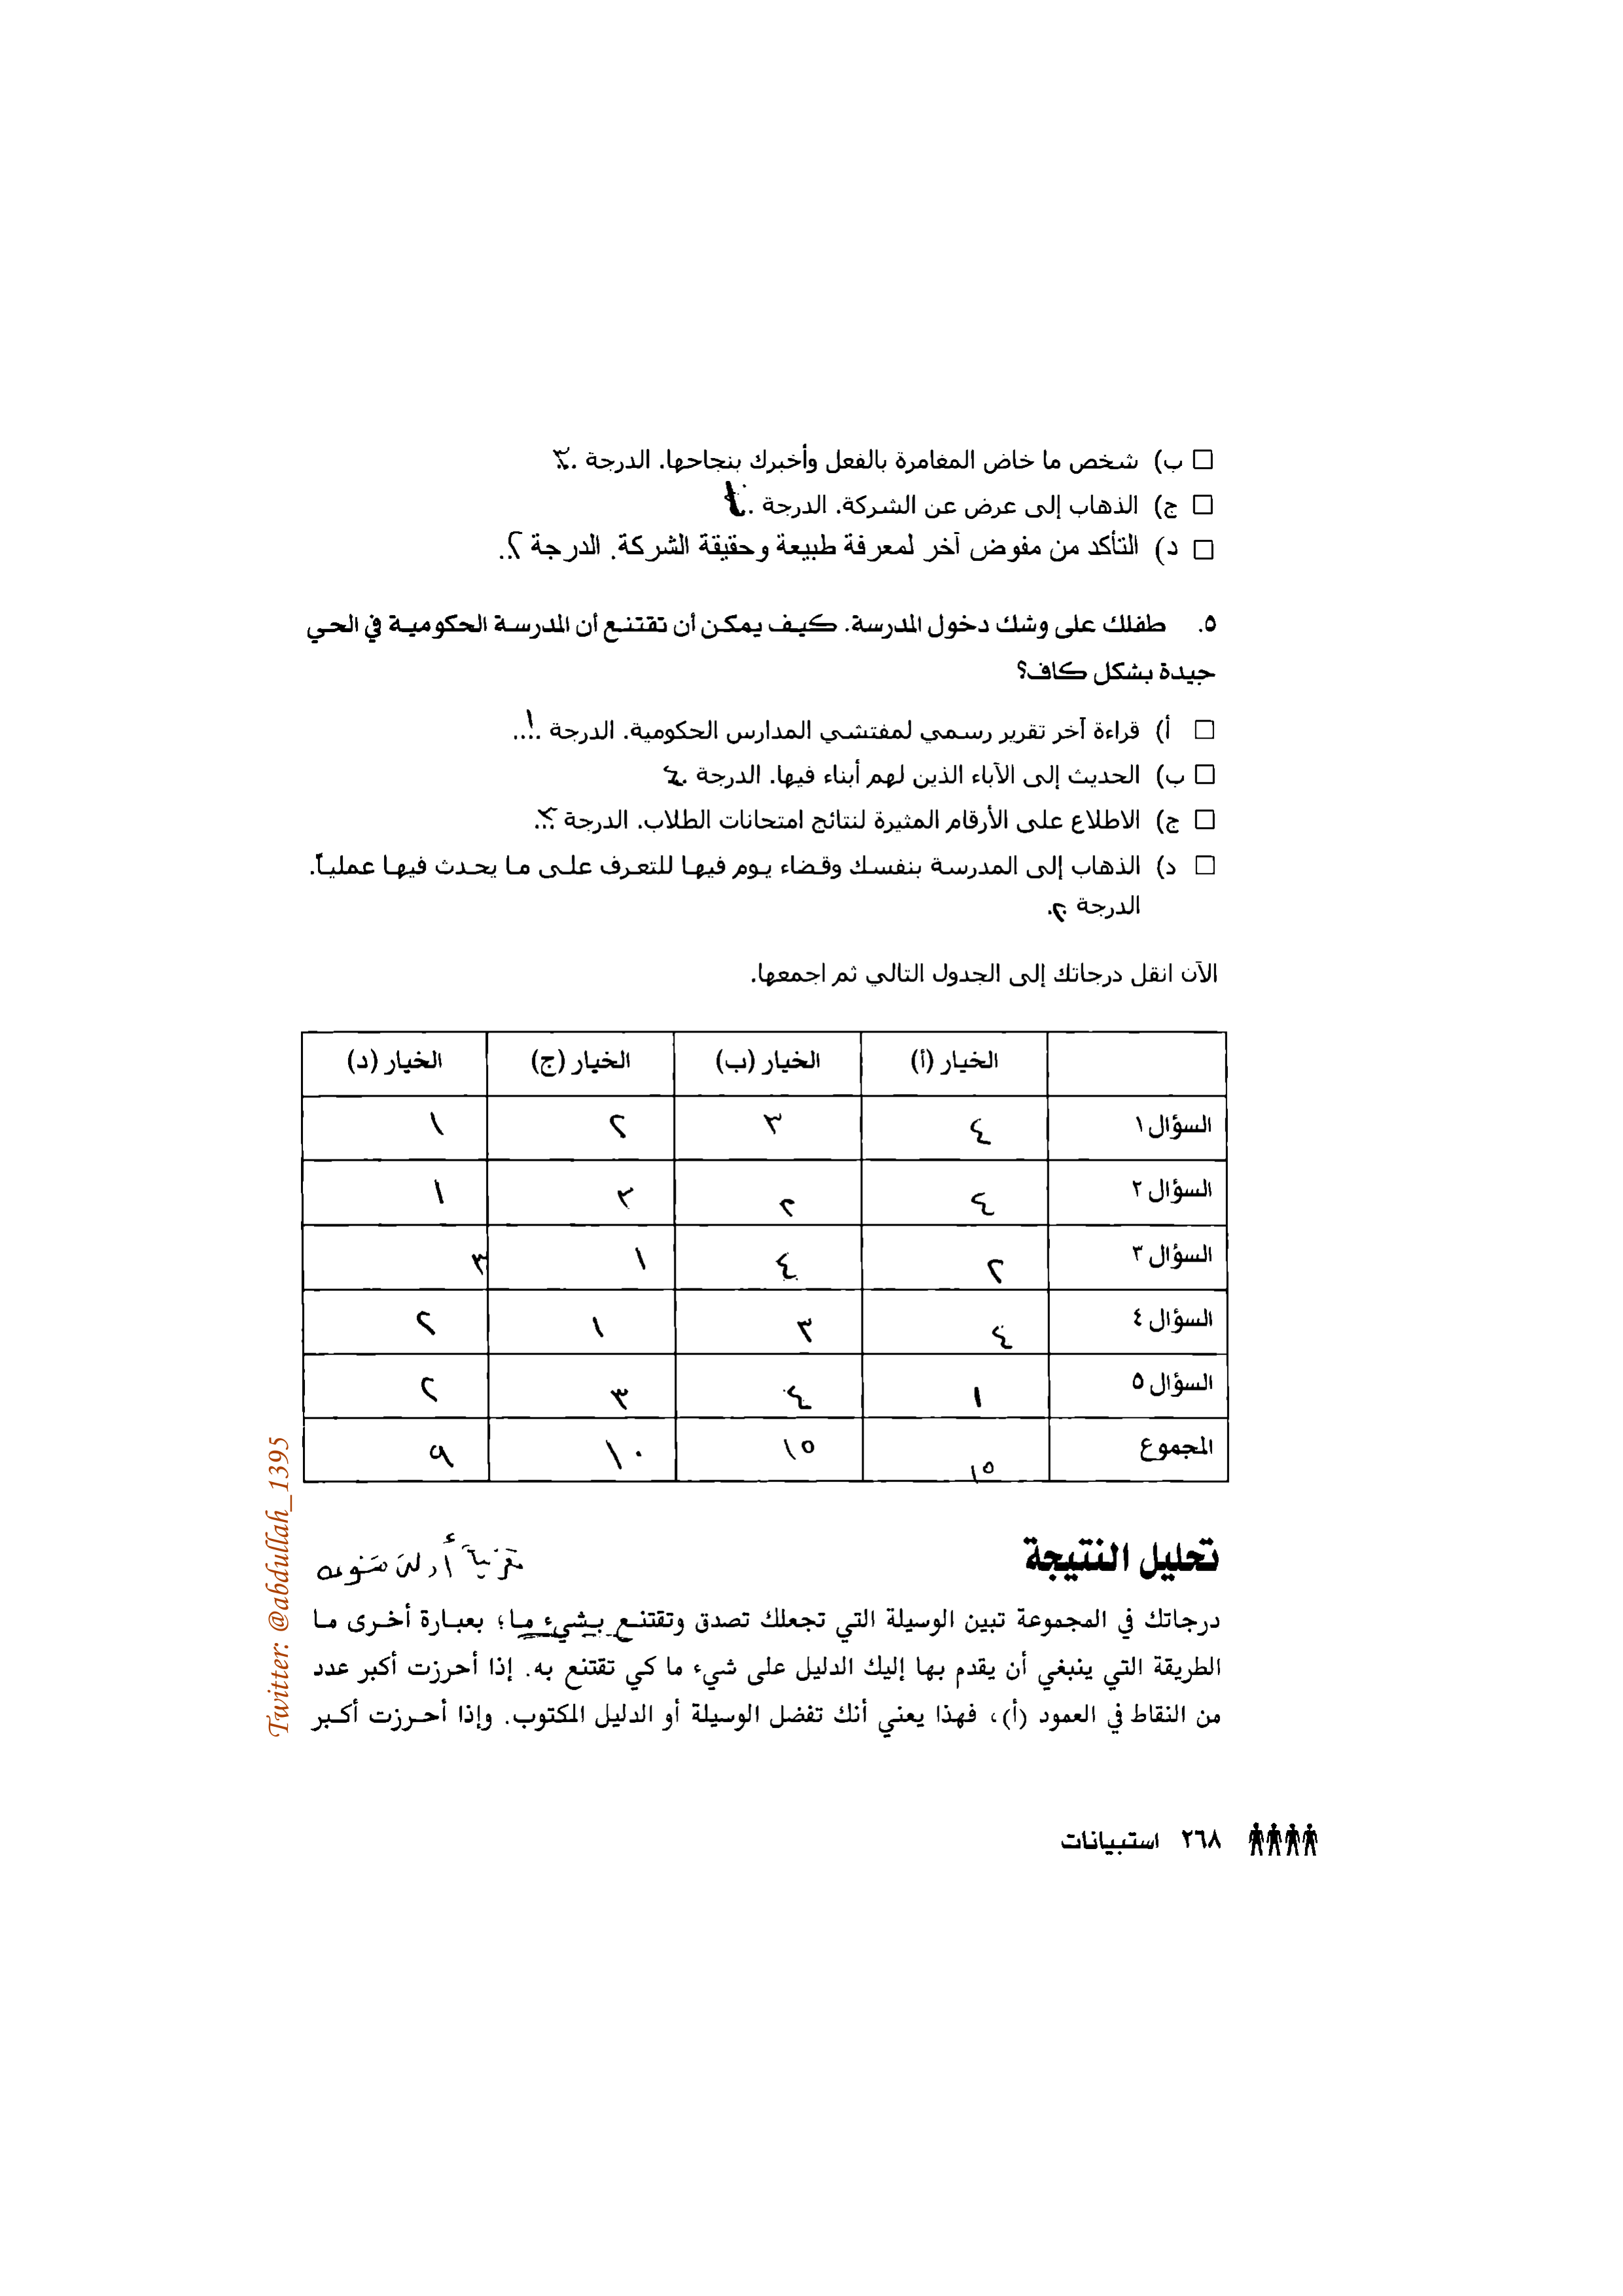 □ ب) شخص ما خاض المغامرة بالفعل وأخبرك بنجاحها. الدرجة .٣.
□ ج) الذهاب إلى عرض عن الشركة. الدرجة .١
□ د) التأكد من مفوض آخر لمعرفة طبيعة وحقيقة الشركة. الدرجة ٢..
٥. طفلك على وشك دخول المدرسة. كيف يمكن أن تقتنع أن المدرسة الحكومية في الحي
جيدة بشكل كاف؟
□ أ) قراءة آخر تقرير رسمي لمفتشي المدارس الحكومية. الدرجة .١...
□ ب) الحديث إلى الآباء الذين لهم أبناء فيها. الدرجة .٤
□ ج) الاطلاع على الأرقام المثيرة لنتائج امتحانات الطلاب. الدرجة .٣..
□ د) الذهاب إلى المدرسة بنفسك وقضاء يوم فيها للتعرف على ما يحدث فيها عملياً.
الدرجة ٢.
الآن انقل درجاتك إلى الجدول التالي ثم اجمعها.
الخيار (أ) الخيار (ب) الخيار (ج) الخيار (د)
السؤال ١ ٤ ٣ ٢ ١
السؤال ٢ ٤ ٢ ٣ ١
السؤال ٣ ٢ ٤ ١ ٣
السؤال ٤ ٤ ٣ ١ ٢
السؤال ٥ ١ ٤ ٣ ٢
المجموع ١٥ ١٥ ١٠ ٩
تحليل النتيجة تقريباً
درجاتك في المجموعة تبين الوسيلة التي تجعلك تصدق وتقتنع بشيء ما؛ بعبارة أخرى ما
الطريقة التي ينبغي أن يقدم بها إليك الدليل على شيء ما كي تقتنع به. إذا أحرزت أكبر عدد
من النقاط في العمود (أ)، فهذا يعني أنك تفضل الوسيلة أو الدليل المكتوب. وإذا أحرزت أكبر
٢٦٨ استبيانات
Twitter: @abdullah_1395